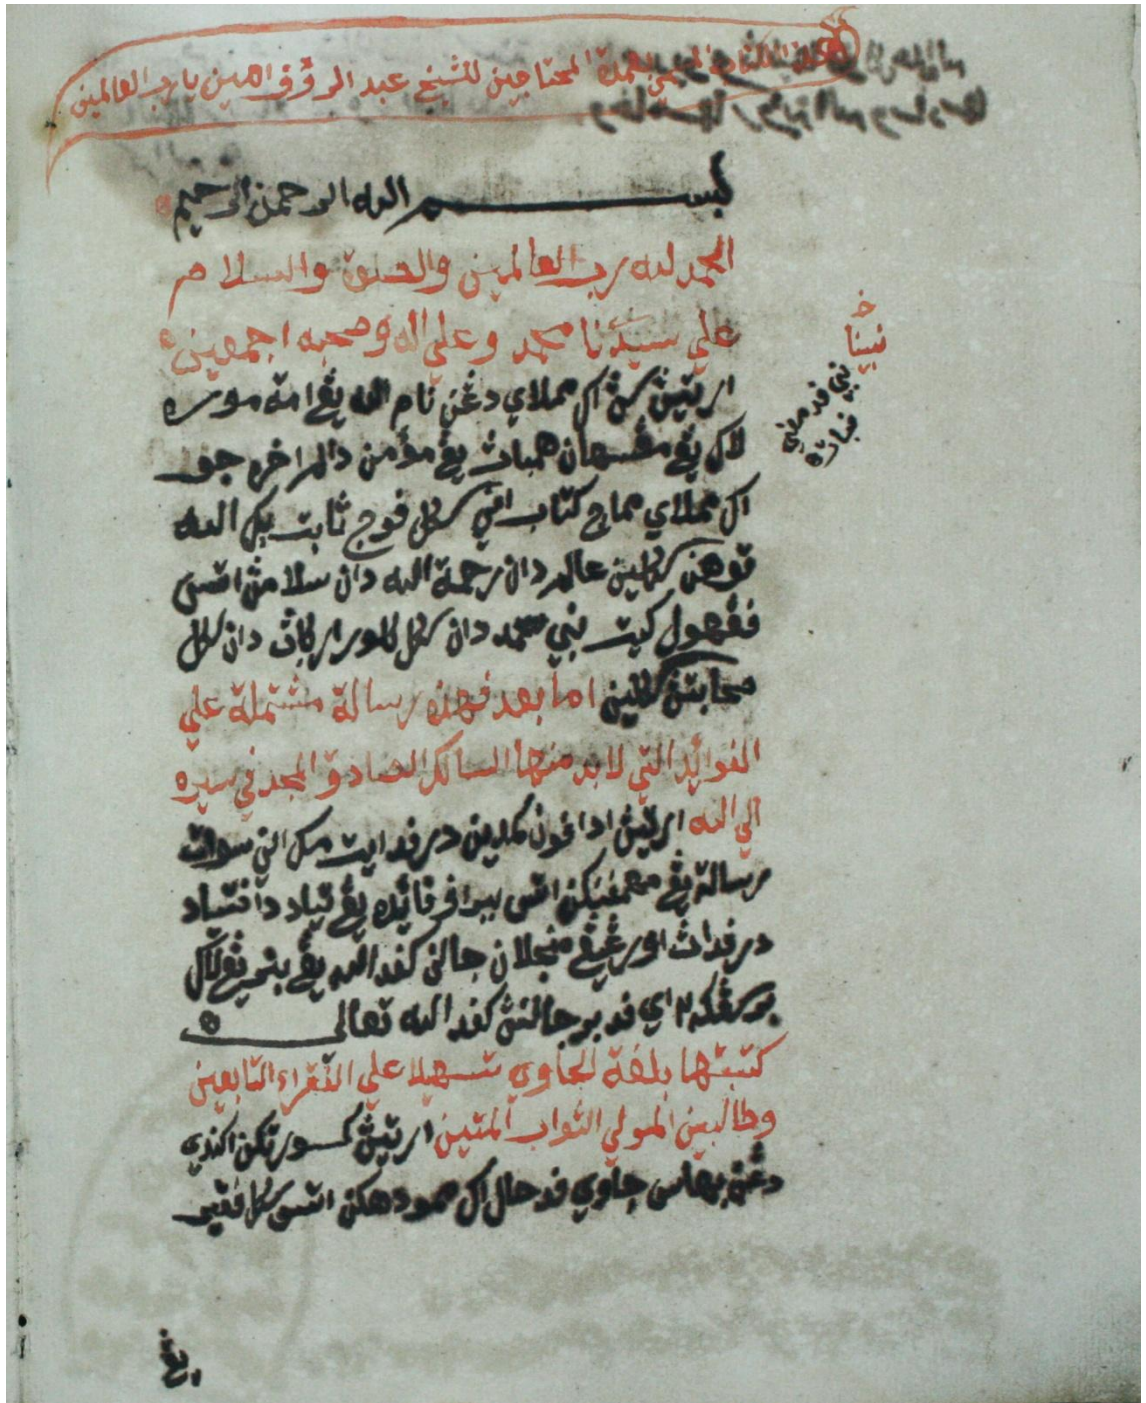 هذا الكتاب المسمى عمدة المحتاجين للشيخ عبد الرؤف امين يا رب العالمين
بسم الله الرحمن الرحيم
الحمد لله رب العالمين والصلوة والسلام
علي سيدنا محمد وعلي اله وصحبه اجمعين
ارتيڽ كڤ اكو ممولاي دڠن نام الله يڠ امة موره
لاكي يڠ مڠسهان همباڽ يڠ مؤمن دالم اخرة جو
اك ممولاي مماچ كتاب اني سكل فوج ثابت بكي الله
توهن سكلين عالم دان رحمة الله دان سلامڽ اتس
ڤڠهول كيت نبي محمد دان سكل كلورارڬاڽ دان سكل
صحابتڽ سكلين اما بعد فهذه رسالة مشتملة علي
الفوائد التي لا بد منها السالك الصادق المجد في سيره
الي الله ارتيڽ ادافون كمدين درفد ايت مك اني سوات
رسالة يڠ مهمفنكن اتس ببراف فائده يڠ تياد دافت تياد
درفداڽ اورڠ يڠ منجلان جالن كفد الله يڠ بنر يڠ لاك
برسڠكه٢ اي فد برجالنڽ كفد الله تعالى
كتبتها بلغة الجاوي تسهيلا علي الفقراء التابعين
وطالبين المولي التواب المتين ارتيڽ كسورتكن اكندي
دڠن بهاس جاوي فد حال اك ممودهكن اتس سكل فقير
يڠ
خ
نبينا
نبي فد معني